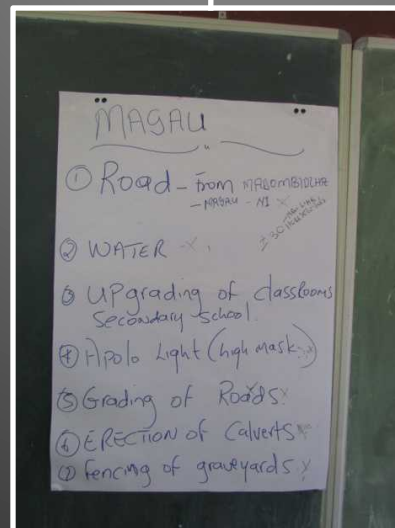 MAGAU
① Road - From MABOMBIDZHA
- MAGAU - N1 X
② WATER X
③ UPgrading of classrooms
Secondary School
④ Apolo Light (high mask)
⑤ Grading of Roads X
⑥ ERECTION of Calverts X
⑦ Fencing of graveyards X